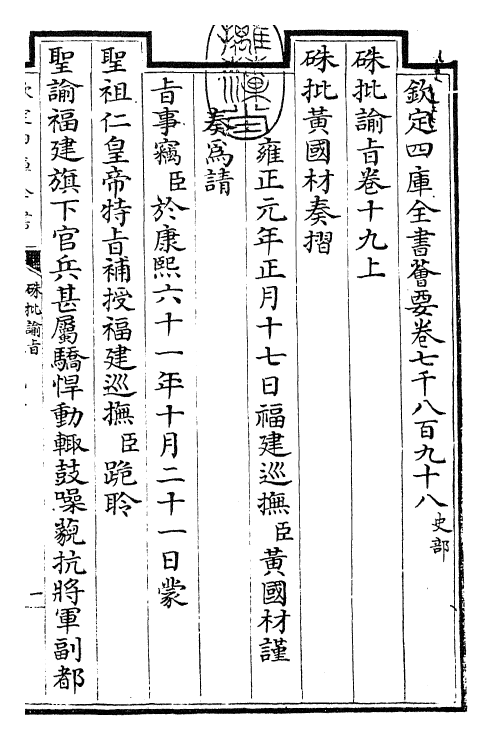 欽定四庫全書薈要卷七千八百九十八史部
硃批諭旨卷十九上
硃批黃國材奏摺
雍正元年正月十七日福建巡撫臣黃國材謹
奏爲請
旨事竊臣於康熙六十一年十月二十一日蒙
聖祖仁皇帝特旨補授福建巡撫臣跪聆
聖諭福建旗下官兵甚屬驕悍動輒鼓噪藐抗將軍副都
硃批諭旨
一